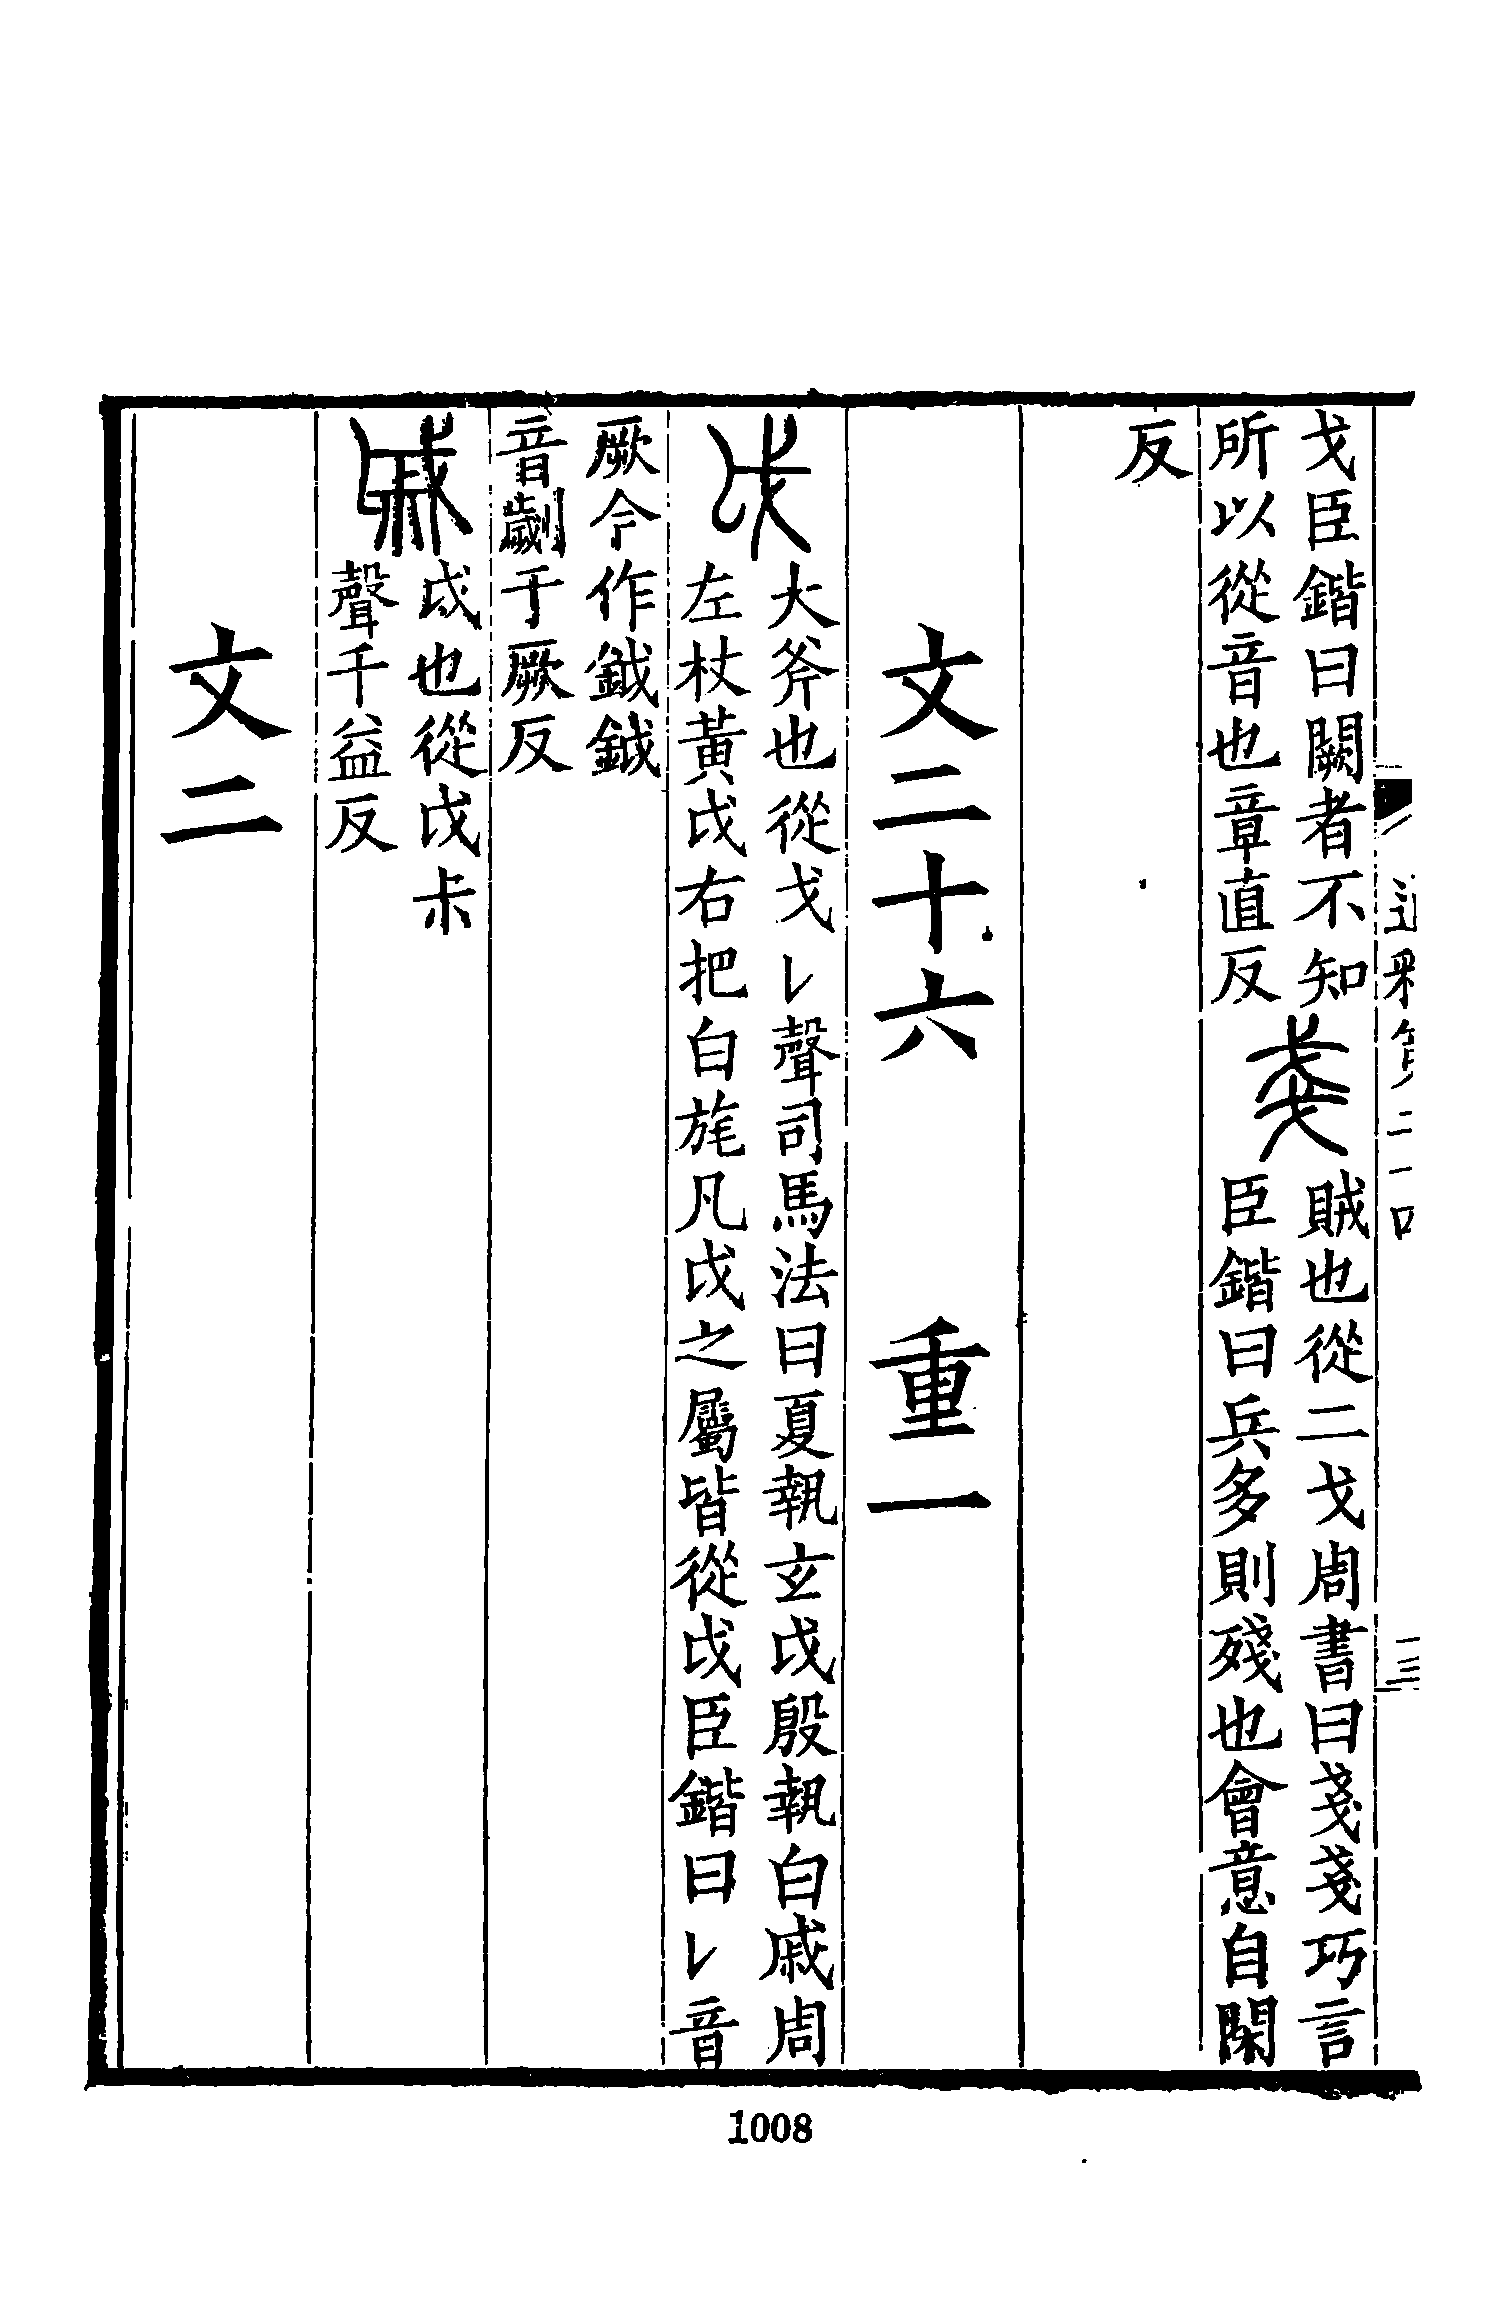 戈臣鍇曰闕者不知
所以從音也章直反
戔
賊也從二戈周書曰戔戔巧言
臣鍇曰兵多則殘也會意自閑
反
文二十六 重一
戉
大斧也從戈𠄌聲司馬法曰夏執玄戉殷執白戚周
左杖黃戉右把白旄凡戉之屬皆從戉臣鍇曰𠄌音
厥今作鉞鉞
音劌于厥反
戚
戉也從戉尗
聲千益反
文二
通釋第二十四
三
1008